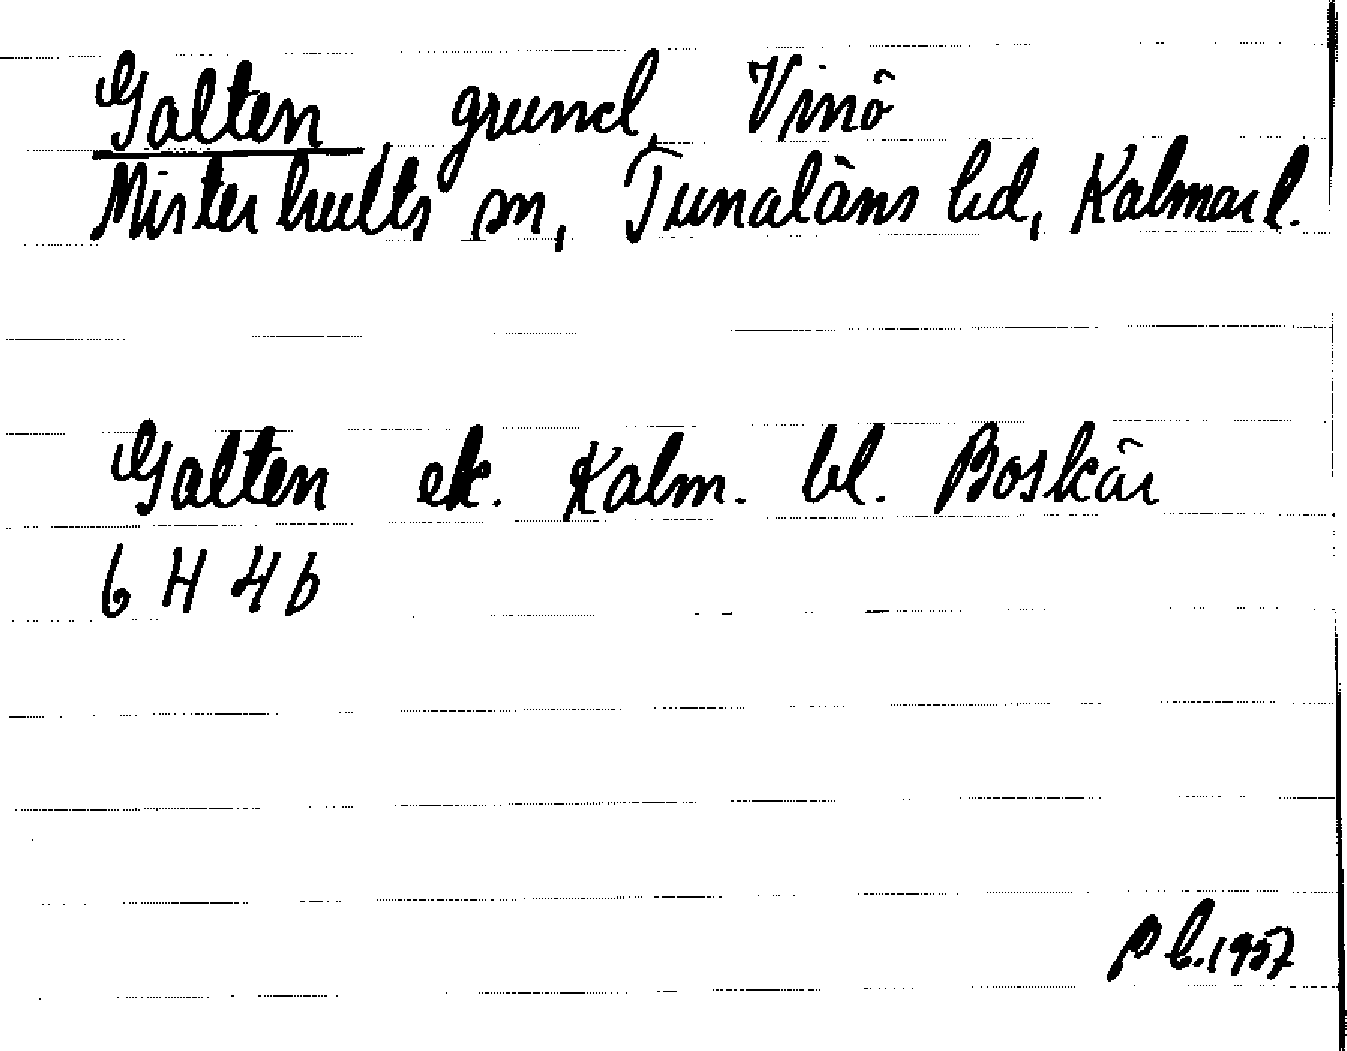 Galten grund, Vinö
Misterhults sn, Tunaläns hd, Kalmar l.
Galten ek. Kalm. bl. Boskär
6 H 4 b
P L. 1957